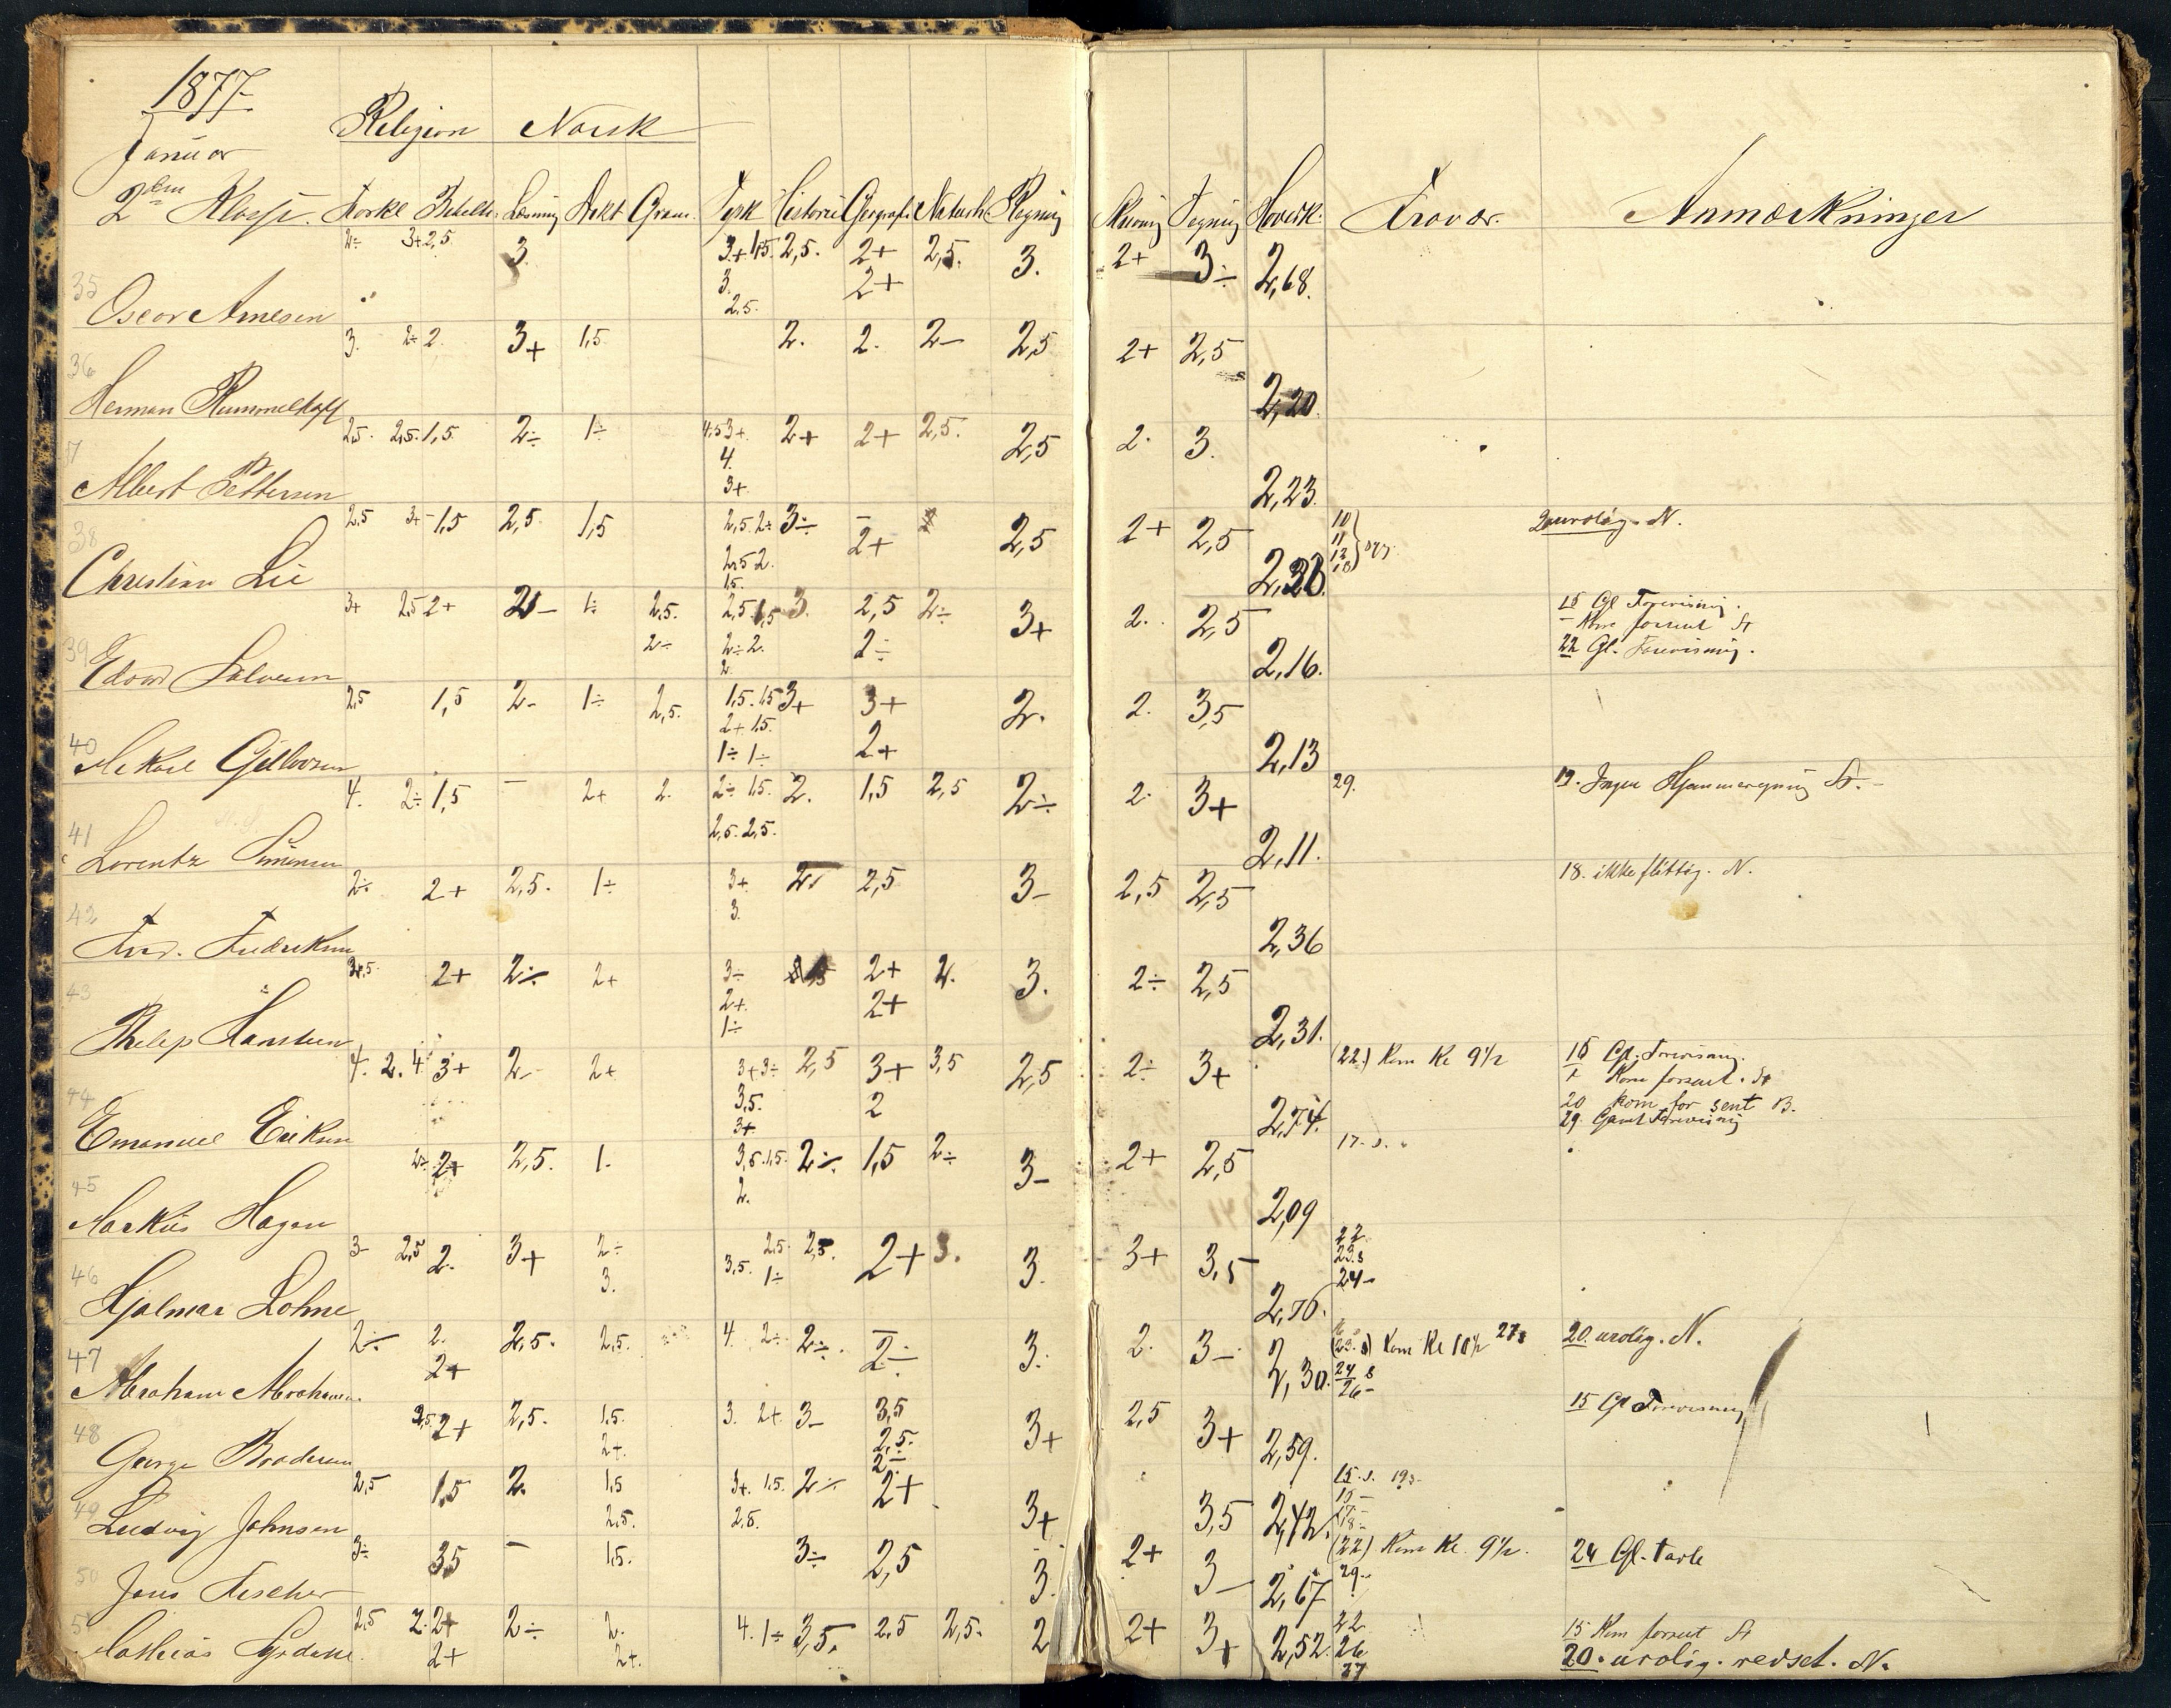 1877
Januar
Religion Norsk
2den Klasse. Forkl Bibelh. Læsning Diktt Gram. Tysk Historie Geografi Naturh Regning Skrivning Tegning Hoverk. Fravær. Anmærkninger
35 Oscar Arnesen 2÷ 3+ 2,5 3. 3+ 1,5 2,5. 2+ 2,5. 3. 2+ 3÷ 2,68.
3. 2+
2,5.
36 Herman Rummelhoff 3. 2÷ 2. 3+ 1,5 2. 2. 2- 2,5 2+ 2,5 2,20.
7 Albert Pettersen 2,5. 2,5. 1,5. 2÷ 1÷ 4,5 3+. 2+ 2+ 2,5. 2,5 2. 3. 2,23.
4.
3+
38 Christian Lie 2,5 3+ - 1,5 2,5. 1,5 2,5. 2÷ 3÷ - 2,5 2+ 2,5 10 11 12 urolig. N.
2,5 2. 2+
1,5.
39 Edvard Salvesen 3+ 2,5 2+ 2- 1÷ 2,5. 2,5 1,5 3. 2,5 2÷ 3+ 2. 2,5 2,16. 15 Gl Forevisning.
2÷ 2÷ 2. 2÷ - Kom forsent St
2. 22 Gl. Forevisning.
40 2,5 1,5 2- 1÷ 2,5. 1,5. 1,5 3+ 3+ 2. 2. 3,5 2,13
2+ 1,5. 2+
1÷ 1÷
41 Lorentz Simonsen 4. 2÷ 1,5 - 2+ 2. 2÷ 1,5. 2. 1,5 2,5 2÷ 2. 3+ 2,11. 29. 19. Ingen Hjemmeregning St. -
2,5. 2,5.
42 Fred. Fredriksen 2÷ 2+ 2,5. 1÷ 3+. 2,5 3- 2,5 2,5 2,36 18. ikke flittig. N.
3.
43 Philip Hansteen 2+ 2÷ 2+ 3÷ 2+ 2. 3. 2÷ 2,5 2,31.
2+ 2+
1÷
44 Emanuel Eriksen 4. 2. 4 3+ 2- 2+ 3+ 3÷ 2,5 3+ 3,5 2,5 2÷ 3+ 2,74. (22.) Kom Kl 9½ 15 Gl. Forevisning.
3,5. 2 Kom forsent. St
3+ 20 kom for sent B.
29. Gaml Forevisning
45 Markus Hagen 2÷ 2+ 2,5. 1. 3,5. 1,5. 2÷ 1,5 2÷ 3- 2+ 2,5 2,09 17. s.
2.
46 Hjalmar Lohne 3- 2,5 2. 3+ 2÷ 2,5. 2,5. 2+ 3. 3. 3+ 3,5 2,76. 22.
3. 3,5. 1÷ 23.s
24-
47 Abraham Abrahamsen. 2÷ 2. 2,5. 2,5. 4. 2÷ 2÷. - 3. 2. 3-. 2,30. (23. s) Kom Kl 10½ 27s 20. urolig. N.
2+ 2÷ 24 s
26-
48 George Brodersen 2,5 2+ 2,5. 1,5. 3. 2+. 3- 3,5 3+ 2,5 3+ 2,59. 15 Gl Forevisning
2+. 2,5.
2÷
49 Ludvig Johnsen 2,5 1,5 2. 1,5 3+. 1,5. 2÷ 2+ 3+ 3,5 2,42. 15. s. 19s-
2,5. 2,5. 16-
17-
18-
50 Jens Fischer 3÷ 3,5 - 1,5. 3÷ 2,5 3. 2+ 3- 2,67 (22) Kom Kl. 9½. 24 Gl. Tavle
29-
5 Mathias Syrdahl 2,5 2. 2+ 2÷ 2. 4. 1÷ 3,5. 2,5 2,5. 2 2+ 3+ 2,52. 22 15 Kom forsent St
2+ 2+. 26 20. urolig. redset. N.
27